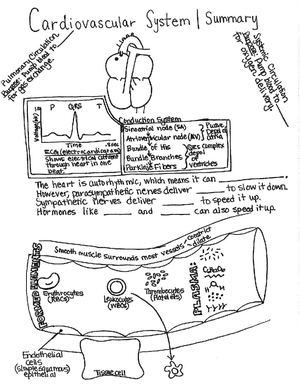 Cardiovascular System | Summary
Pulmonary Circulation
Purpose: Pump blood to ____
for gas exchange.
Systemic Circulation
Purpose: Pump blood to ____
for oxygen delivery.
Lungs
P QRS T
Voltage (mV)
Time .8sec
ECG (electrocardiogram)
Shows electrical current
through heart in one
beat.
Conduction System
Sinoatrial node (SA)
Atrioventricular node (AV)
P wave
Depol of
atria
Bundle of His
Bundle Branches
Purkinje Fibers
QRS complex
depol of
ventricles
The heart is autorhythmic, which means it can ____
However, parasympathetic nerves deliver ____ to slow it down.
Sympathetic nerves deliver ____ to speed it up.
Hormones like ____ and ____ can also speed it up.
Smooth muscle surrounds most vessels
constrict
dilate
FORMED ELEMENTS
Erythrocytes
(RBCs)
Leukocytes
(WBCs)
Thrombocytes
(Platelets)
PLASMA:
Endothelial
cells
(simple squamous)
epithelial
Tissue cell